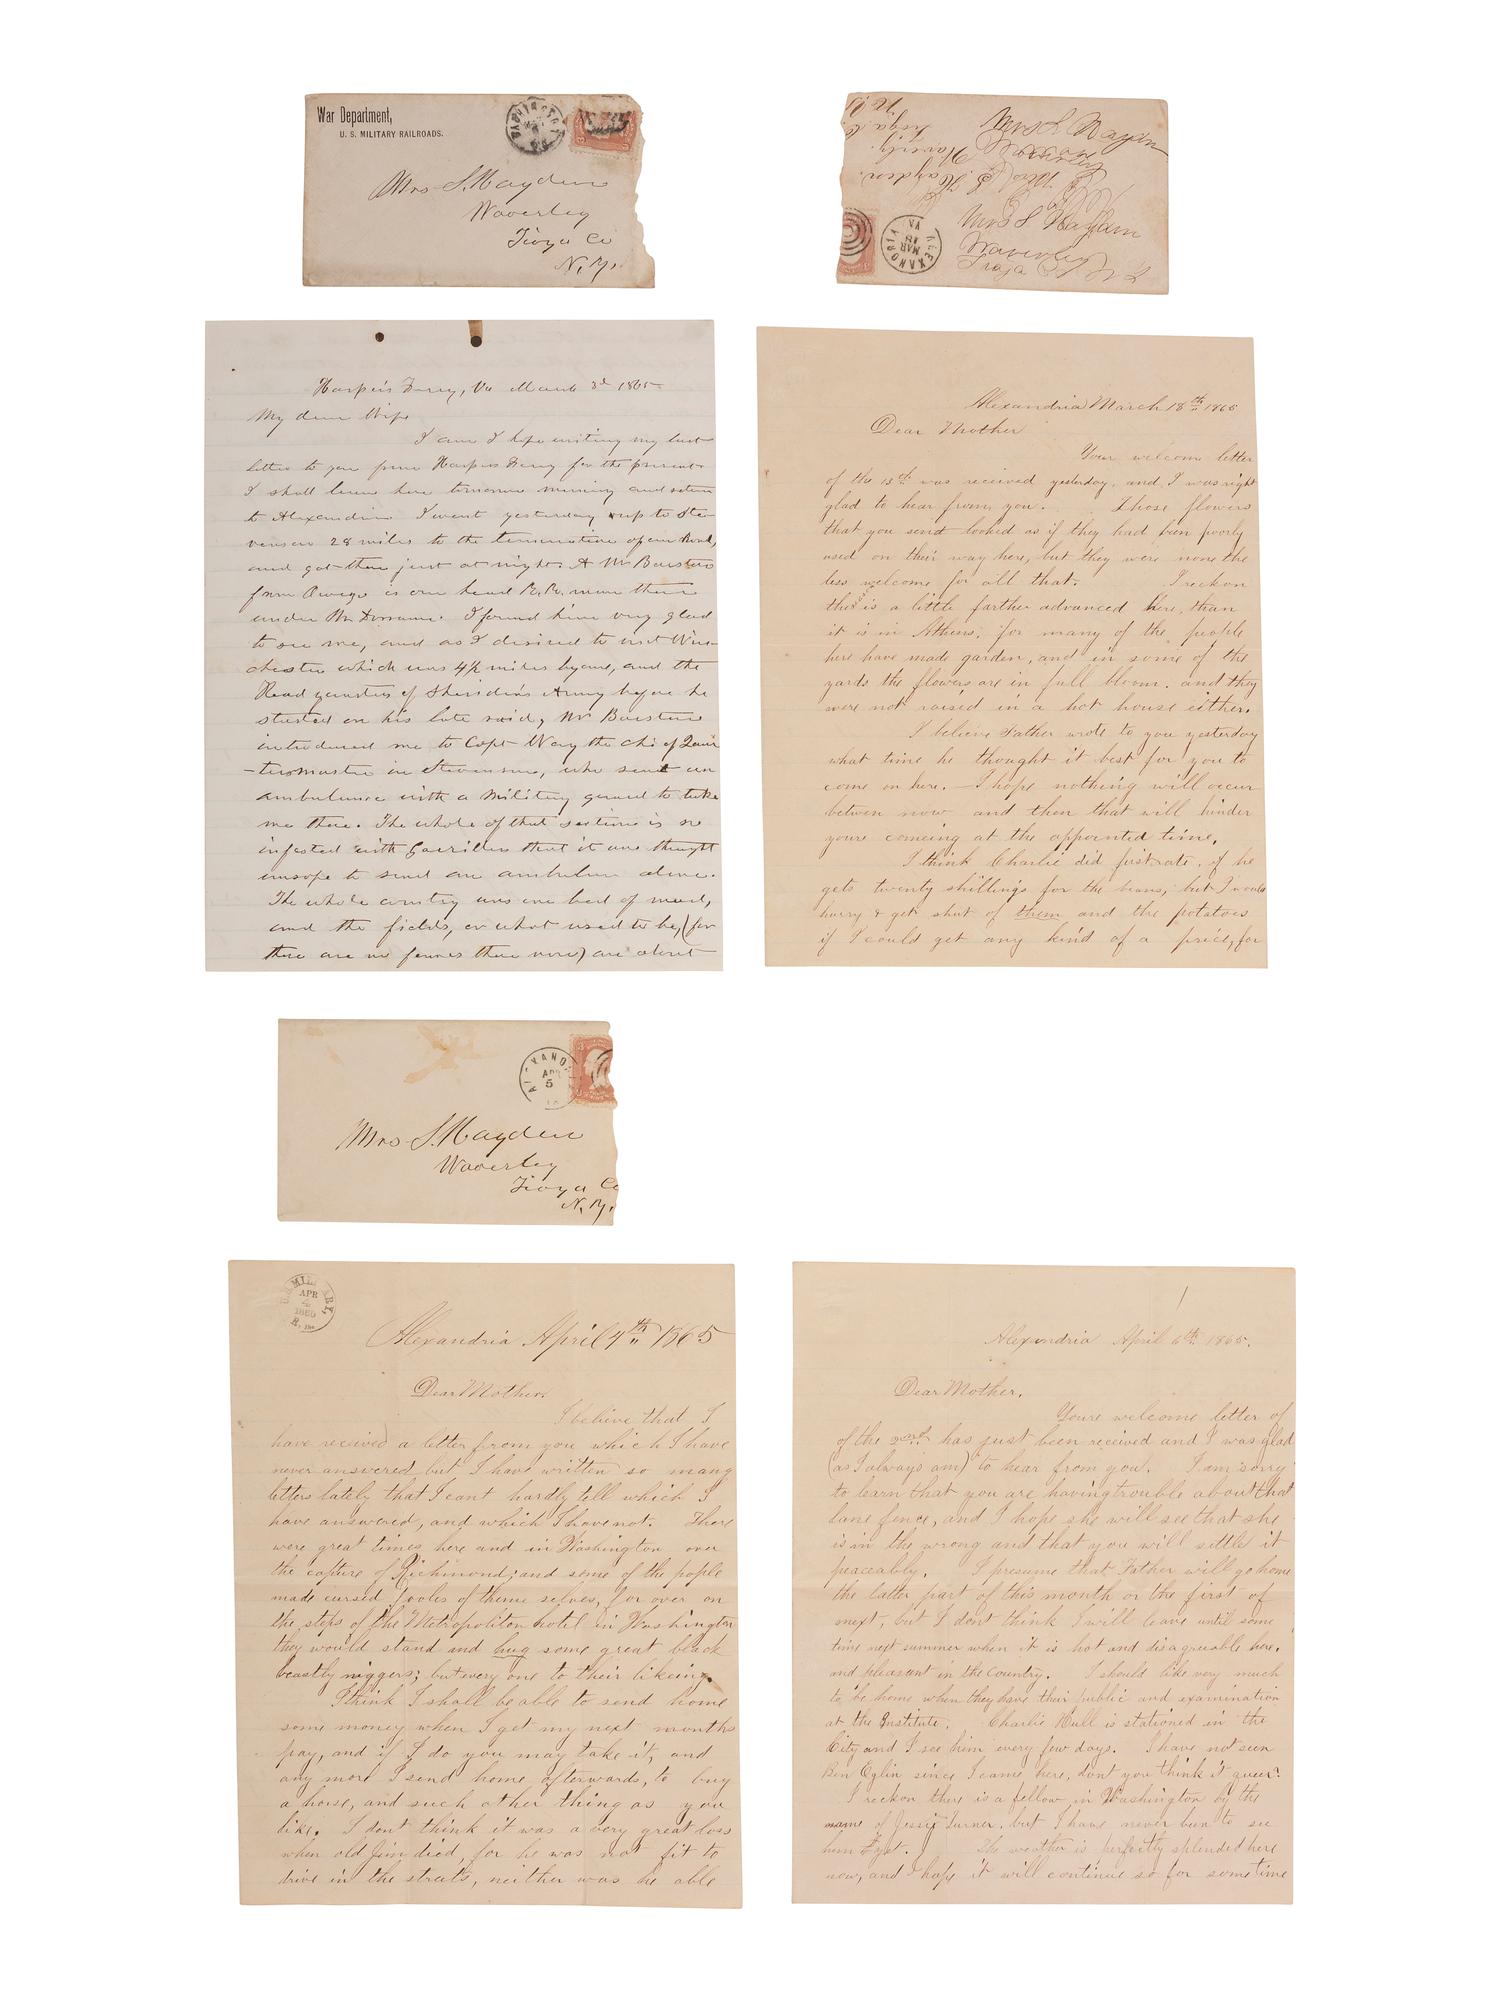 War Department,
U. S. MILITARY RAILROADS.
WASHINGTON
Mrs S. Hayden
Waverley
Tioga Co
N. Y.
Mrs S Hayden
Waverly.
Tioga Co
ALEXANDRIA
MAR
VA
Mrs S Hayden
Waverley
Tioga Co N. Y.
Harper's Ferry, Va March 3d 1865
My dear Wife
I am I hope writing my last
letter to you from Harpers Ferry for the present
I shall leave here tomorrow morning and return
to Alexandria I went yesterday up to Ste-
venson 28 miles to the termination of our Road,
and got there just at night. A Mr
from Owego is our head R. R. man there
under Mr I found him very glad
to see me, and as I desired to visit Win-
chester which was 4½ miles beyond, and the
Head quarters of Sheridan's Army before he
started on his late raid, Mr
introduced me to Capt Way the chief Quar
-termaster in Stevenson, who sent an
ambulance with a military guard to take
me there. The whole of that section is so
infested with Guerillas that it was thought
unsafe to send an ambulance alone.
The whole country was one bed of mud,
and the fields, or what used to be, (for
there are no fences there now) are about
Alexandria March 18th 1865
Dear Mother
Your welcome letter
of the 13th was received yesterday, and I was right
glad to hear from you. Those flowers
that you send looked as if they had been poorly
used on their way here, but they were none the
less welcome for all that. I reckon
the is a little farther advanced here, than
it is in Athens, for many of the people
here have made garden, and in some of the
yards the flowers are in full bloom. and they
were not raised in a hot house either.
I believe Father wrote to you yesterday
what time he thought it best for you to
come on here. I hope nothing will occur
betwen now and then that will hinder
youre comeing at the appointed time.
I think Charlie did first rate, if he
gets twenty shillings for the beans, but I would
hurry & get shut of them and the potatoes
if I could get any kind of a price, for
APR
5
Mrs S. Hayden
Waverley
Tioga Co
N. Y.
APR
4
1865
Alexandria April 4th 1865
Dear Mother.
I believe that I
have received a letter from you which I have
never answered but I have written so many
letters lately that I cant hardly tell which I
have answered, and which I have not. There
were great times here and in Washington over
the capture of Richmond; and some of the pople
made cursed fooles of theme selves, for over on
the steps of the Metropoliton hotel in Washington
they would stand and hug some great black
beastly niggers; but every one to their likeing.
I think I shall be able to send home
some money when I get my next months
pay, and if I do you may take it, and
any more I send home, afterwards, to buy
a horse, and such other thing as you
like. I dont think it was a very great loss
when old Jim died, for he was not fit to
drive in the streets, neither was he able
Alexandria April 6th 1865.
Dear Mother.
Youre welcome letter of
of the 2nd has just been received and I was glad
(as I always am) to hear from you. I am sorry
to learn that you are having trouble about that
lane fence, and I hope she will see that she
is in the wrong and that you will settle it
peaceably. I presume that Father will go home
the latter part of this month or the first of
next, but I dont think I will leave until some
time next summer when it is hot and disagreeable here.
and pleasant in the country. I should like very much
to be home when they have their public and examination
at the Institute. Charlie Hull is stationed in the
City and I see him every few days. I have not seen
Ben Eglin since I came here, dont you think it queer?
I reckon there is a fellow in Washington by the
name of Jessie Turner. but I have never been to see
him yet. The weather is perfectly splended here
now, and I hope it will continue so for some time